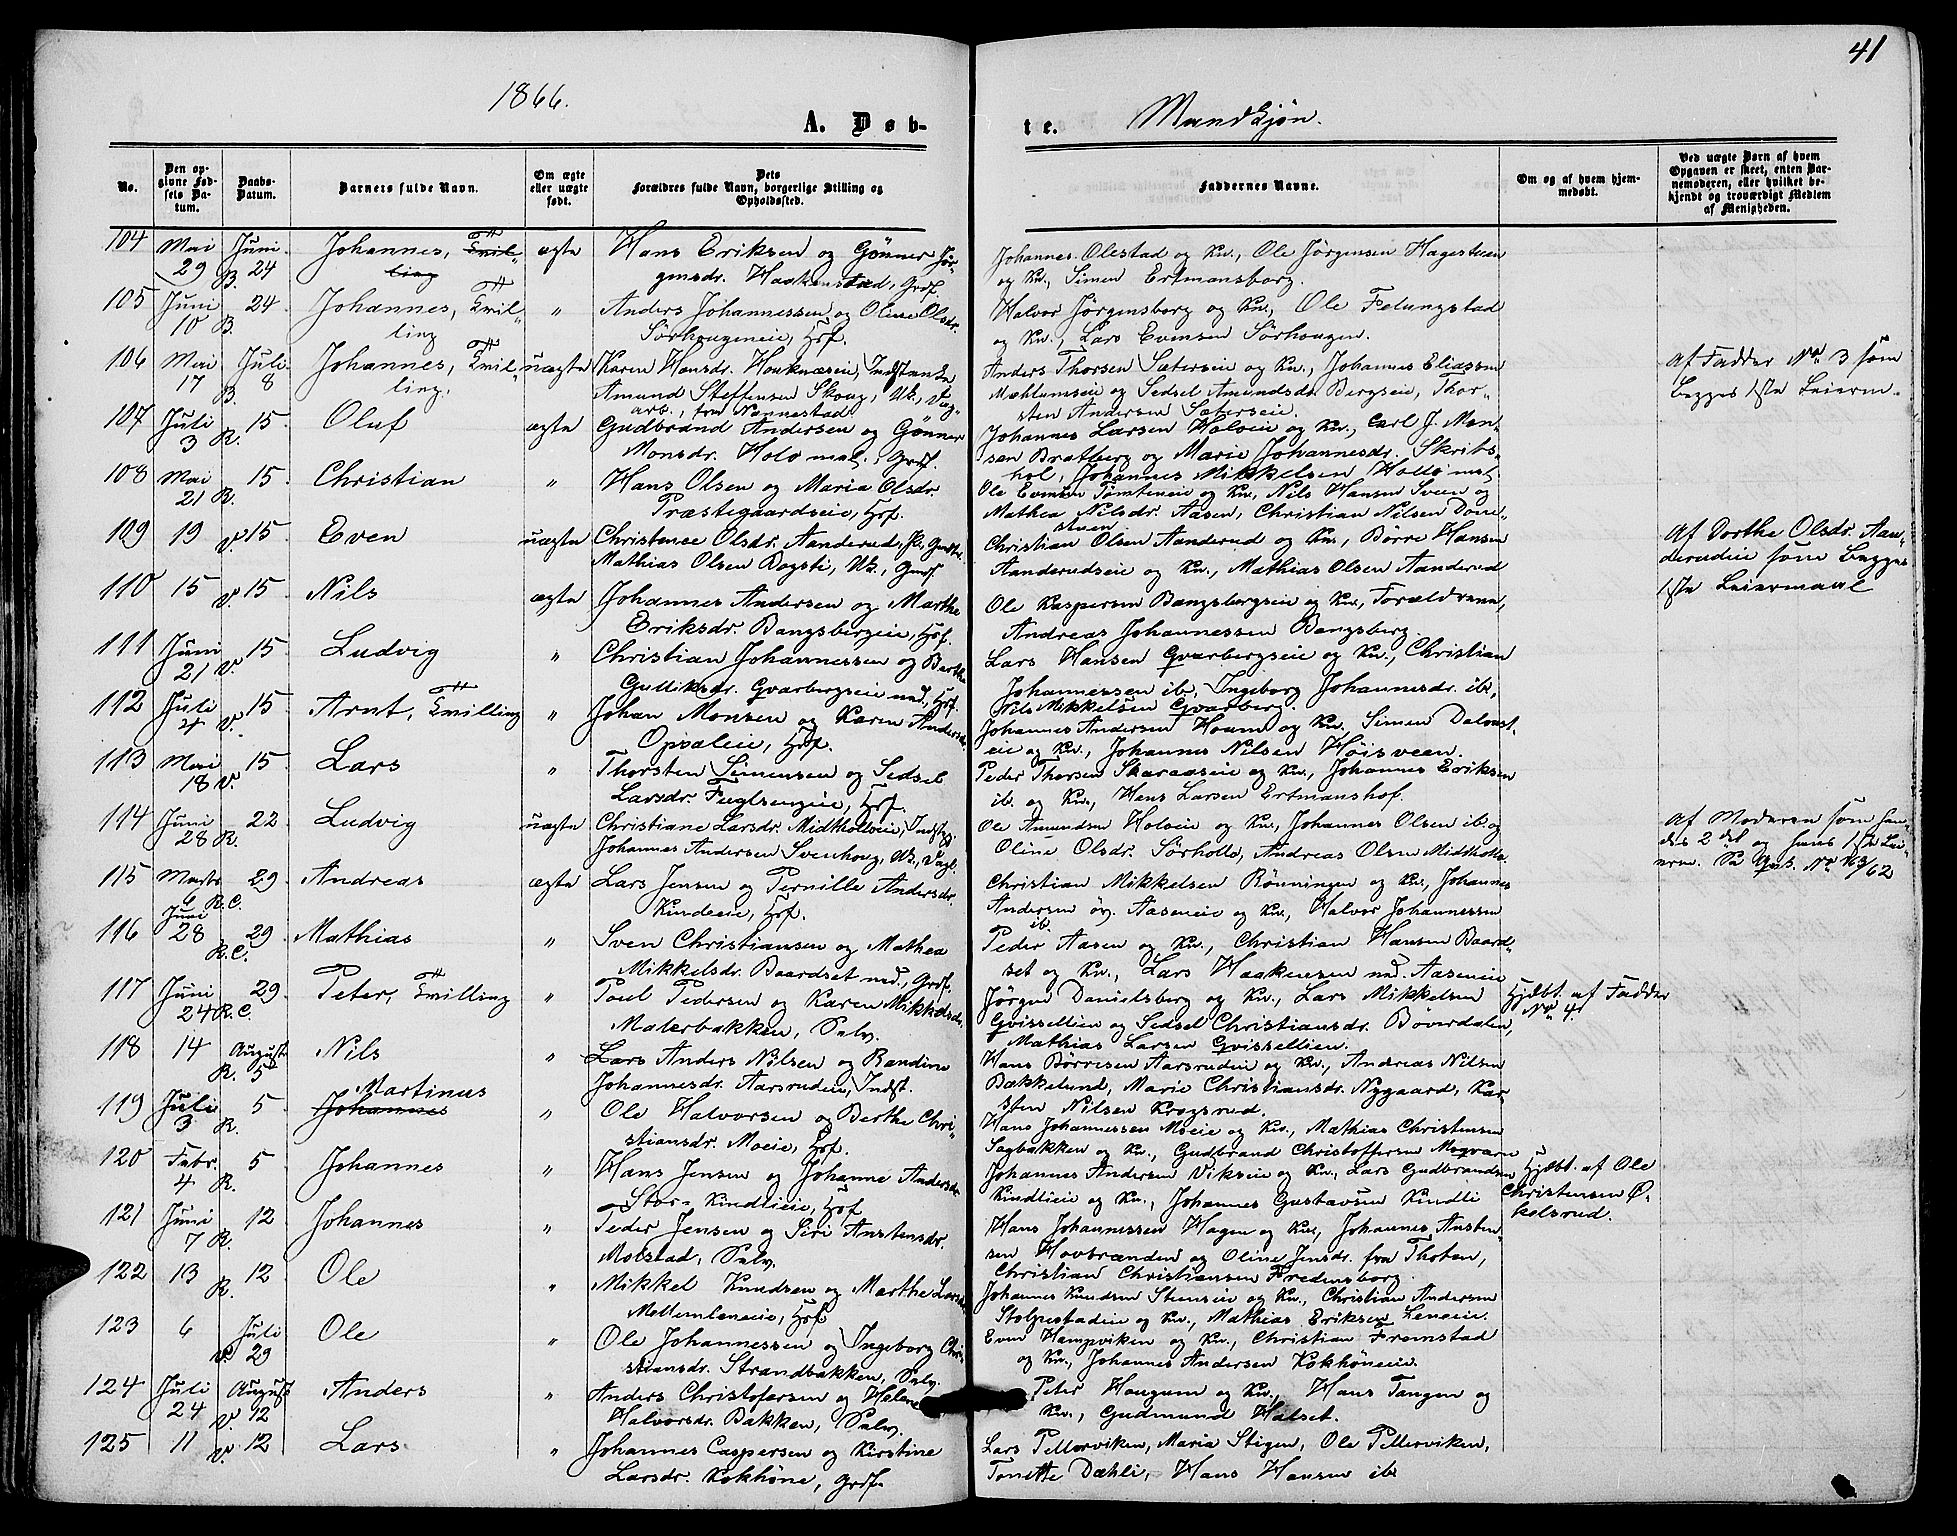 41
1866.
A. Døb-
te.
Mandkjøn.
No.
Den op-
givne Fød-
sels Da-
tum.
Daabs-
Datum.
Barnets fulde Navn.
Om ægte
eller uægte
født.
Dets
Forældres fulde Navn, borgerlige Stilling og
Opholdssted.
Faddernes Navne.
Om og af hvem hjem-
medøbt.
Ved uægte Børn af hvem
Opgaven er skeet, enten Bar-
nemoderen, eller hvilket be-
kjendt og troværdigt Medlem
af Menigheden.
104 Mai 29 B. Juni 24 Johannes, Tvil-
ling ægte Hans Eriksen og Gönner Jör-
gensdr. Haakenstad, Grdf.
Johannes Olestad og Kv., Ole Jörgensen Hagesteen
og Kv., Simen Ertmansborg.
105 Juni 10 B. 24 Johannes, Tvil-
ling " Anders Johannessen og Oline Olsdr.
Sörhougeneie, Hsf.
Halvor Jörgensborg og Kv., Ole Felungstad
og Kv., Lars Evensen Sörhougen.
106 Mai 17 B. Juli 8 Johannes, Tvil-
ling. uægte Karen Hansdr. Houknæseie, Indst. Enke
Amund Steffensen Skoug, Uk., Dag-
arb., fra Nannestad
Anders Thorsen Sætereie og Kv., Johannes Eliassen
Mæhlumseie og Sedsel Amundsdr. Bergseie, Thor-
sten Andersen Sæterseie.
Af Fadder No 3 som
begges 1ste Leierm.
107 Juli 3 R. 15 Oluf ægte Gudbrand Andersen og Gönner
Monsdr. Holo mel., Grdf.
Johannes Larsen Holoeie og Kv., Carl J. Mon-
sen Bratberg og Marie Johannesdr. Skrits-
hol, Johannes Mikkelsen Hollo mel.
108 Mai 21 R. 15 Christian " Hans Olsen og Maria Olsdr.
Præstegaardseie, Hsf.
Ole Evensen Tömteeie og Kv., Nils Hansen Sveen og
Mathea Nilsdr. Aasen, Christian Nilsen Döne-
sveen
109 19 V. 15 Even uægte Christence Olsdr. Aanderud, fk., Grdst.
Mathias Olsen Bagsti, Uk., Grdf.
Christian Olsen Aanderud og Kv., Börre Hansen
Aanderudseie og Kv., Mathias Olsen Aanderud
Af Dorthe Olsdr. Aan-
derudeie som begges
1ste Leiermaal
110 15 V. 15 Nils ægte Johannes Andersen og Marthe
Eriksdr. Bangsbergeie, Hsf.
Ole Kaspersen Bangsbergseie og Kv., Forældrene,
Andreas Johannessen Bangsberg.
111 Juni 21 V. 15 Ludvig " Christian Johannessen og Berthe
Gulliksdr. Gvarbergseie ned., Hsf.
Lars Hansen Gvarbergseie og Kv., Christian
Johannessen ib., Ingeborg Johannesdr. ib.,
Nils Mikkelsen Gvarberg.
112 Juli 4 V. 15 Arnt, Tvilling " Johan Monsen og Karen Andersdr.
Opsaleie, Hsf.
Johannes Andersen Houm og Kv., Simen Dalvest-
eie og Kv., Johannes Nilsen Höisveen.
113 Mai 18 V. 15 Lars " Thorsten Simensen og Sedsel
Larsdr. Fuglsengeie, Hsf.
Peder Thorsen Skaraaseie og Kv., Johannes Eriksen
ib. og Kv., Hans Larsen Ertmanshof.
114 Juni 28 R. 22 Ludvig uægte Christiane Larsdr. Midtholoeie, Indst.
Johannes Andersen Svenhoug, Uk., Dagl.
Ole Amundsen Holoeie og Kv., Johannes Olsen ib. og
Oline Olsdr. Sörhollo, Andreas Olsen Midthollo
Af Moderen som hen-
des 2det og hans 1ste Lei-
erm. No 163/62
115 Marts 6 R.C. 29 Andreas ægte Lars Jensen og Pernille Andersdr.
Kindeeie, Hsf.
Christian Mikkelsen Rönningen og Kv., Johannes
Andersen öv. Aaseneie og Kv., Halvor Johannessen
ib.
116 Juni 28 R.C. 29 Mathias " Sven Christiansen og Mathea
Mikkelsdr. Baardset ned., Grdf.
Peder Aasen og Kv., Christian Hansen Baard-
set og Kv., Lars Haakensen ned. Aaseneie
117 Juni 24 R.C. 29 Peter, Tvilling " Poul Pedersen og Karen Mikkelsdr.
Malerbakken, Selv.
Jörgen Danielsberg og Kv., Lars Mikkelsen
Gvissellien og Sedsel Christiansdr. Böverdalen,
Mathias Larsen Gvissellien.
Hjdbt. af Fadder
No 4.
118 14 R. August 5 Nils " Lars Anders Nilsen og Randine
Johannesdr. Aarsrudeie, Indst.
Hans Börresen Aarsrudeie og Kv., Andreas Nilsen
Bakkelund, Marie Christiansdr. Nygaard, Kar-
sten Nilsen Krogsrud.
119 Juli 3 R. 5 Martinus
Johannes " Ole Halvorsen og Berthe Chri-
stiansdr. Moeie, Hsf.
Hans Johannessen Moeie og Kv., Mathias Christensen
Sagbakken og Kv., Gudbrand Christoffersen
120 Febr. 4 R. 5 Johannes " Hans Jensen og Johanne Andersdr.
Stor-Kindlieie, Hsf
Johannes Andersen Vikseie og Kv., Lars Gudbrandsen
Kindlieie og Kv., Johannes Gustavsen Kindli
Hjdbt. af Ole
Christensen Ö-
kelsrud.
121 Juni 7 R. 12 Johannes " Peder Jensen og Siri Anstensdr.
Molstad, Selv.
Hans Johannessen Hagen og Kv., Johannes Ansten-
sen Hovbranden og Oline Jensdr. fra Thoten,
Christian Christiansen Fredensborg.
122 13 R. 12 Ole " Mikkel Knudsen og Marthe Larsdr.
Mellemleneeie, Hsf
Johannes Knudsen Steenseie og Kv., Christian Andersen
Stolpestadeie og Kv., Mathias Eriksen Leneeie.
123 6 V. Juli 29 Ole " Ole Johannessen og Ingeborg Chri-
stiansdr. Strandbakken, Selv.
Even Hampviken og Kv., Christian Fremstad
og Kv., Johannes Andersen Kokhöneie.
124 Juli 24 V. August 12 Anders " Anders Christofersen og Helene
Halvorsdr. Bakken, Selv.
Peter Hougum og Kv., Hans Tangen og
Kv., Gudmund Halset.
125 11 V. 12 Lars " Johannes Caspersen og Kirstine
Larsdr. Kokhöne, Grdf.
Lars Pellerviken, Maria Stigen, Ole Pellerviken,
Tonette Dæhli, Hans Hansen ib.